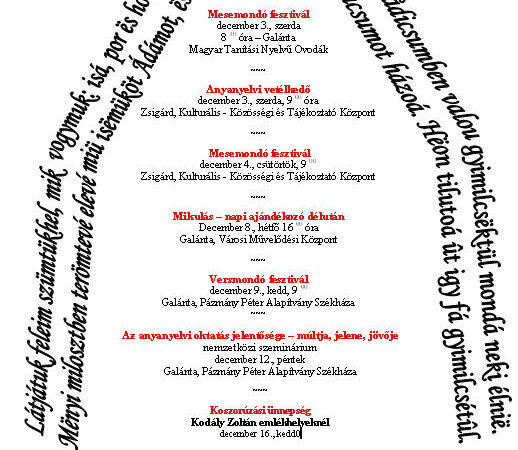 Látjátuk feleim szümtükhel, mik vogymuk: isá, por ës ho
Mënyi milosztben terömtevé elevé miü isëmüköt Ádámot, ës
Mesemondó fesztivál
december 3., szerda
8 00 óra – Galánta
Magyar Tanítási Nyelvű Óvodák
~~~
Anyanyelvi vetélkedő
december 3., szerda, 9 00 óra
Zsigárd, Kulturális - Közösségi és Tájékoztató Központ
~~~
Mesemondó fesztivál
december 4., csütörtök, 9 00
Zsigárd, Kulturális - Közösségi és Tájékoztató Központ
~~~
Mikulás – napi ajándékozó délután
December 8., hétfő 16 00 óra
Galánta, Városi Művelődési Központ
~~~
Versmondó fesztivál
december 9., kedd, 9 00
Galánta, Pázmány Péter Alapítvány Székháza
~~~
Az anyanyelvi oktatás jelentősége – múltja, jelene, jövője
nemzetközi szeminárium
december 12., péntek
Galánta, Pázmány Péter Alapítvány Székháza
~~~
Koszorúzási ünnepség
Kodály Zoltán emlékhelyeknél
december 16., kedd0
adicsumben valou gyimilcsëktül mondá neki élnië.
dicsumot házoá. Hëon tilutoá űt igy fá gyimilcsëtül.